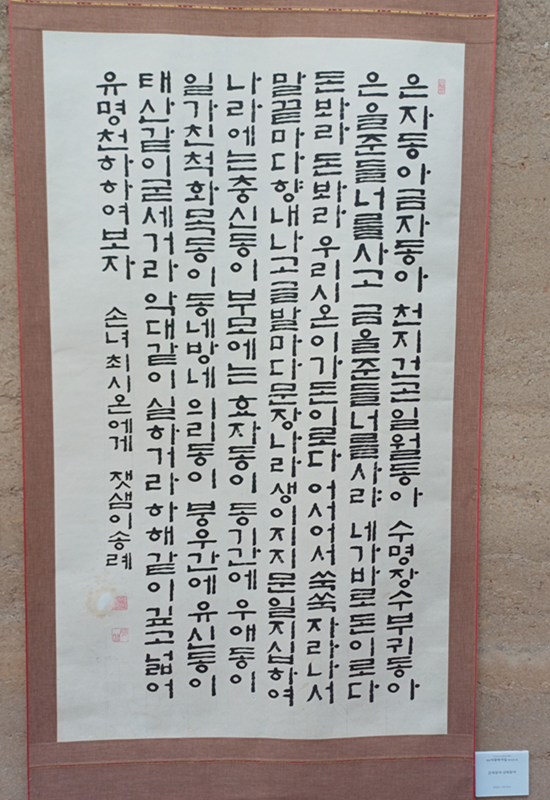 은자동아금자동아 천지건곤일월동아 수명장수부귀동아
은을준들너를사고 금을준들너를사랴 네가바로돈이로다
돈봐라 돈봐라 우리시온이가돈이로다 어서어서쑥쑥자라나서
말끝마다향내나고글발마다문장나라생이지지문일지십하여
나라에는충신동이 부모에는효자동이 동기간에 우애동이
일가친척화목동이 동네방네 으리동이 붕우간에유신동이
태산같이굳세거라 악대같이실하거라 하해같이깊고넓어
유명천하하여보자 손녀최시온에게 잿샘이송례